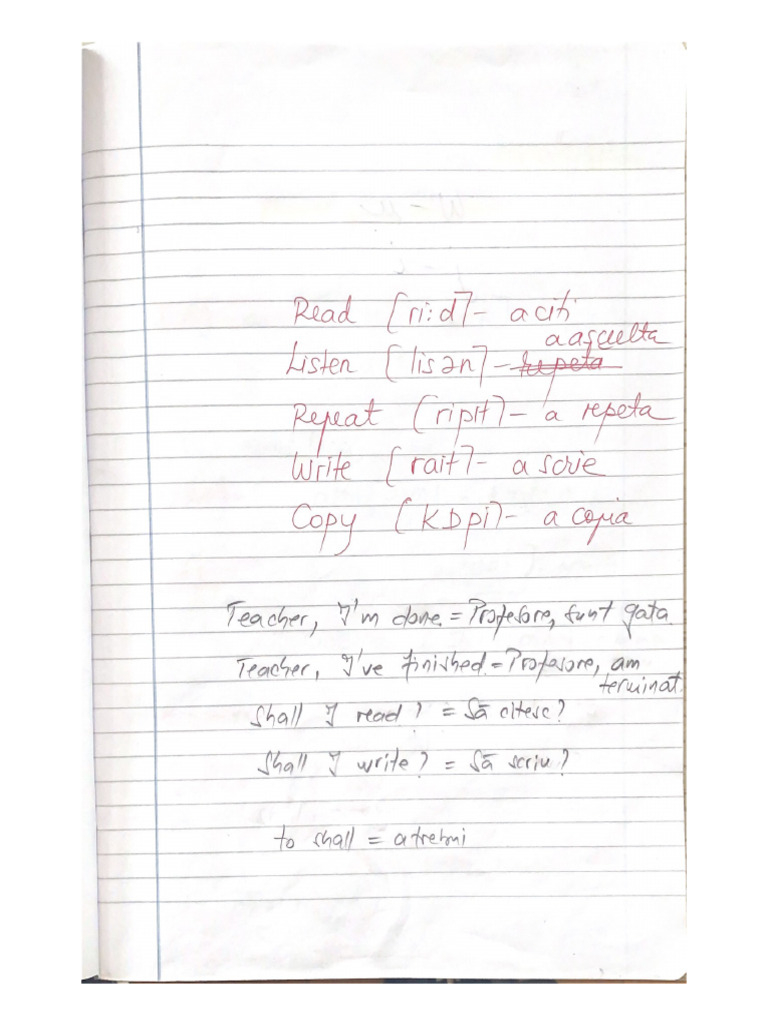 Read [ri:d] - a citi
a asculta
Listen [lisən] - repeta
Repeat [ripit] - a repeta
Write [rait] - a scrie
Copy [kɒpi] - a copia
Teacher, I'm done. = Profesore, sunt gata.
Teacher, I've finished. = Profesore, am
terminat.
Shall I read? = Să citesc?
Shall I write? = Să scriu?
to shall = a trebui